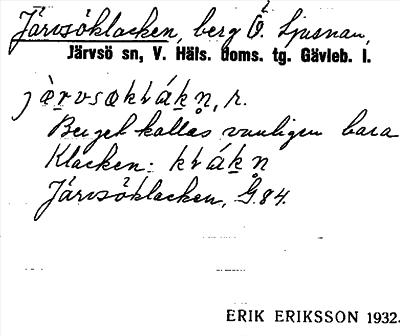 Järvsöklacken, berg Ö. Ljusnan,
Järvsö sn, V. Häls. doms. tg. Gävleb. l.
r.
Berget kallas vanligen bara
Klacken:
Järvsöklacken, G. 84.
ERIK ERIKSSON 1932.